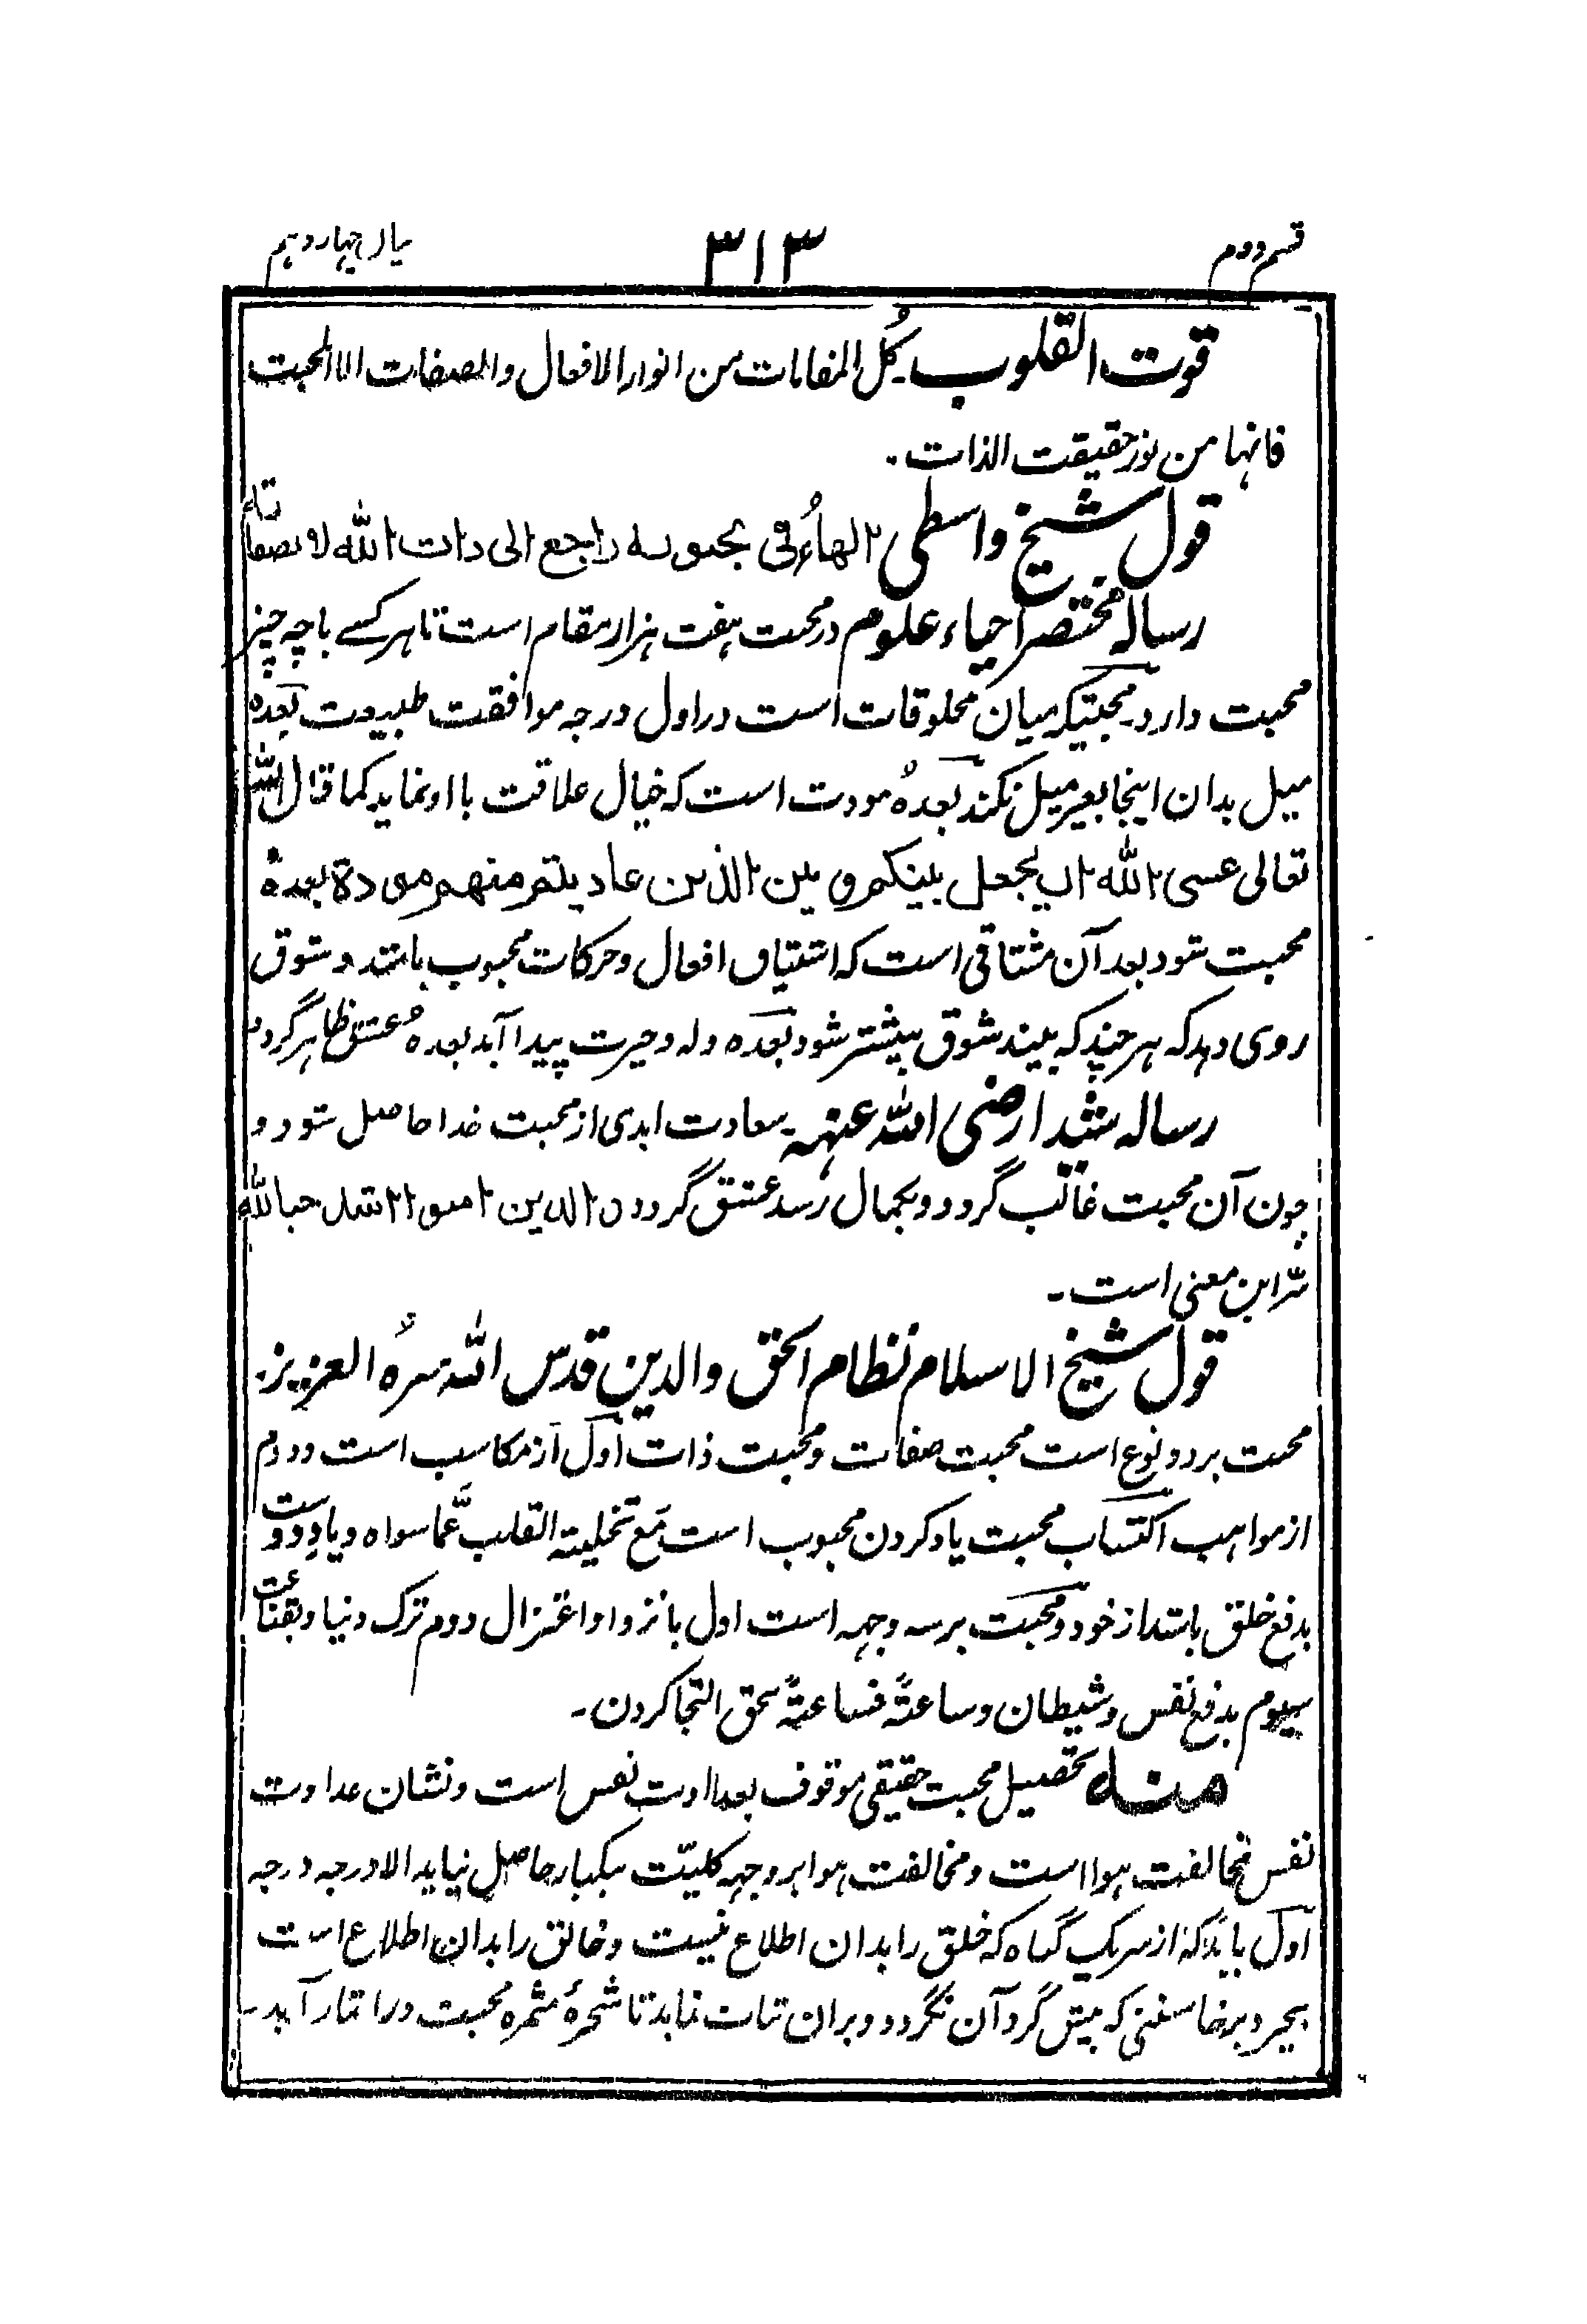 قسم دوم ۳۱۳ بیان چهاردهم
قوت القلوب۔ کُل المقامات من انوار الافعال والصفات الا المحبت
فانها من نور حقیقت الذات۔
قول شیخ واسطی الهاءُ فی یحبونه راجع الی ذات الله لا بصفاته
رساله مختصر احیاء علوم در محبت هفت هزار مقام است تا هر کسے باچه چیز
محبت دارد۔ محبتیکه میان مخلوقات است در اول درجه موافقت طبیعت بعده
میل بدان اینجا بغیر میل نکند بعدهٗ مودت است که خیال علاقت با او نماید کما قال الله
تعالی عسی الله ان یجعل بینکم و بین الذین عادیتم منهم مودة بعدهٗ
محبت شود بعد آن مشتاقی است که اشتیاق افعال و حرکات محبوب باشد و شوق
روی دهد که هر چند که بیند شوق بیشتر شود بعده وله و حیرت پیدا آید بعدهٗ عشق ظاهر گردد
رساله شدا رضی الله عنهه۔ سعادت ابدی از محبت خدا حاصل شود و
چون آن محبت غائب گردد و بکمال رسد عشق گردد ن الذین امنوا اشد حبا لله
سّر این معنی است۔
قول شیخ الاسلام نظام الحق والدین قدس الله سرهُ العزیز۔
محبت بر دو نوع است محبت صفات و محبت ذات اول از مکاسب است و دوم
از مواهب اکتساب محبت یاد کردن محبوب است مع تخلیة القلب عمّا سواه و یاد دوست
بدفع خلق باشد از خود و محبت بر سه وجهه است اول بانزوا و اعتزال دوم ترک دنیا و بقناعت
سیوم بدفع نفس و شیطان و ساعةً فساعةً بحق التجا کردن۔
منه تحصیل محبت حقیقی موقوف بعداوت نفس است و نشان عداوت
نفس مخالفت هوا است و مخالفت هوا بر وجهه کلیّت بیکبار حاصل نیاید الا درجه درجه
اول باید که از سر یک گناه که خلق را بدان اطلاع نیست و خالق را بدان اطلاع است
برخاستنی که بیش گرد آن نگردد و بران ثبات نماید تا شجرهٔ مثمره محبت در اثمار آید۔